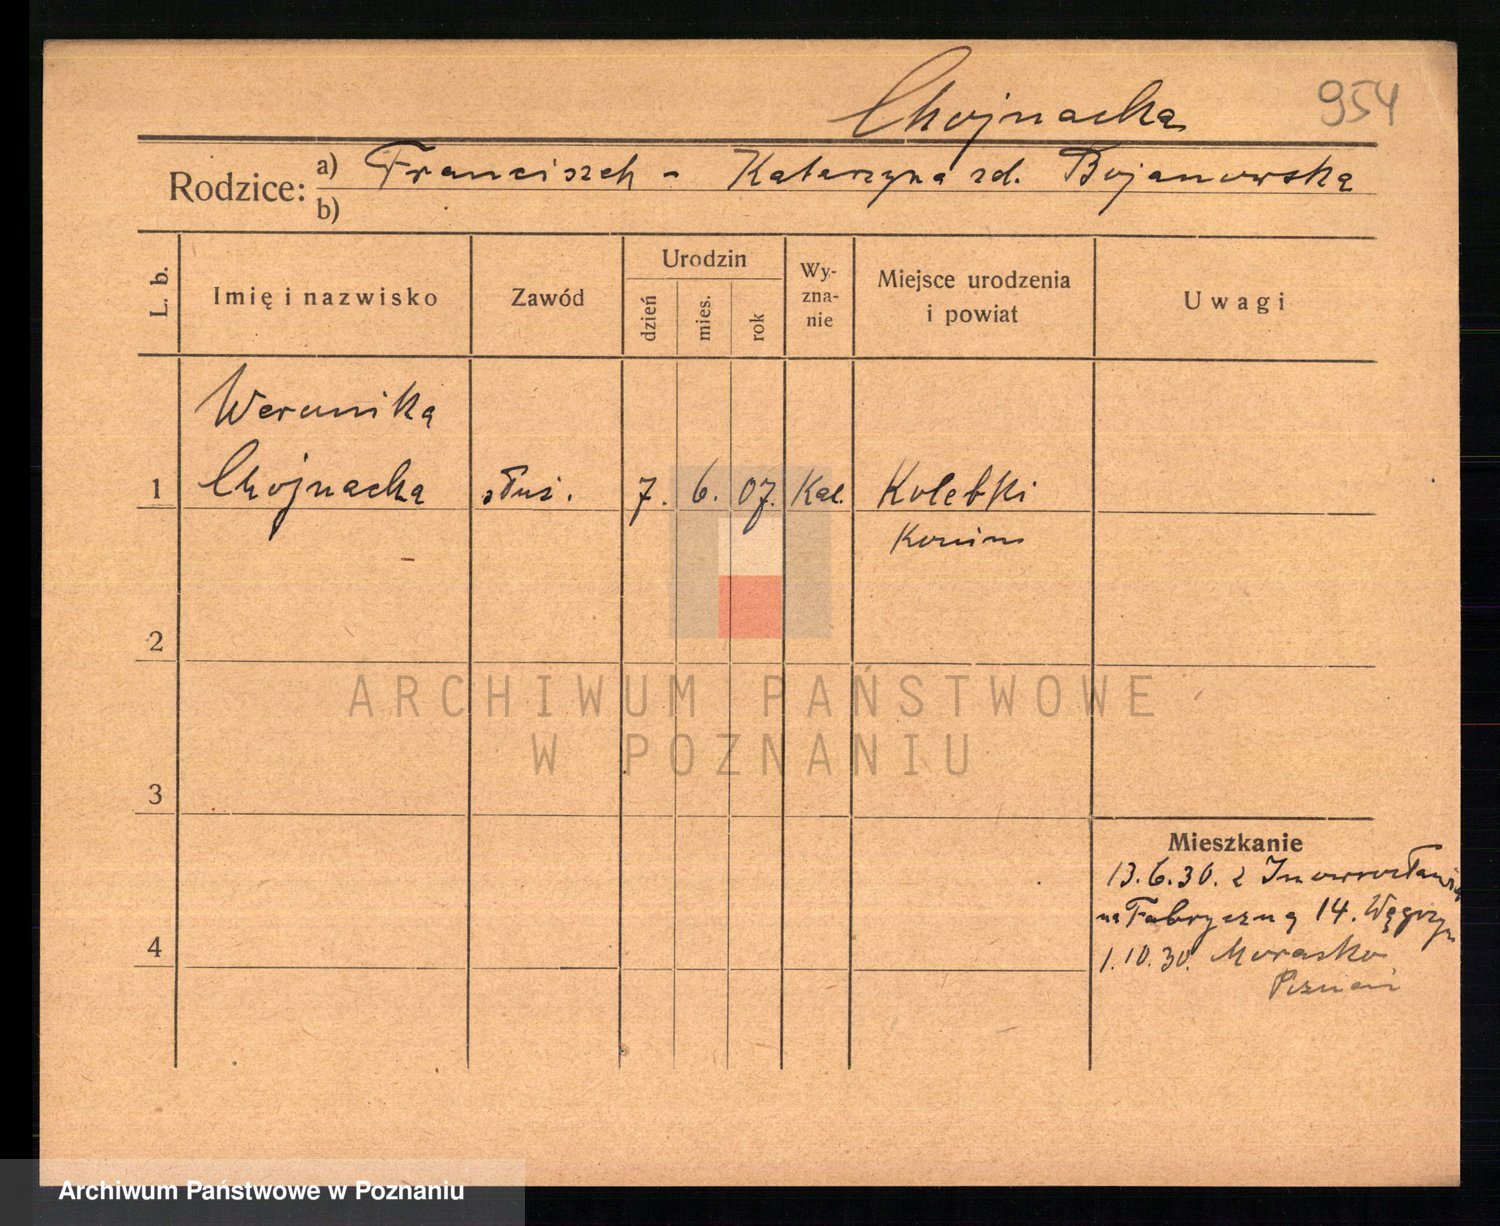 Chojnacka 954
Rodzice: a) Franciszek - Katarzyna zd. Bojanowska
b)
L. b. Imię i nazwisko Zawód Urodzin dzień mies. rok Wy-zna-nie Miejsce urodzenia i powiat Uwagi
Weronika
1 Chojnacka służ. 7. 6. 07. Kat. Kolebki
Konin
2
ARCHIWUM PAŃSTWOWE
W POZNANIU
3
Mieszkanie
13.6.30. z Inowrocławia
na Fabryczną 14.
4 1.10.30. Morasko
Poznań
Archiwum Państwowe w Poznaniu